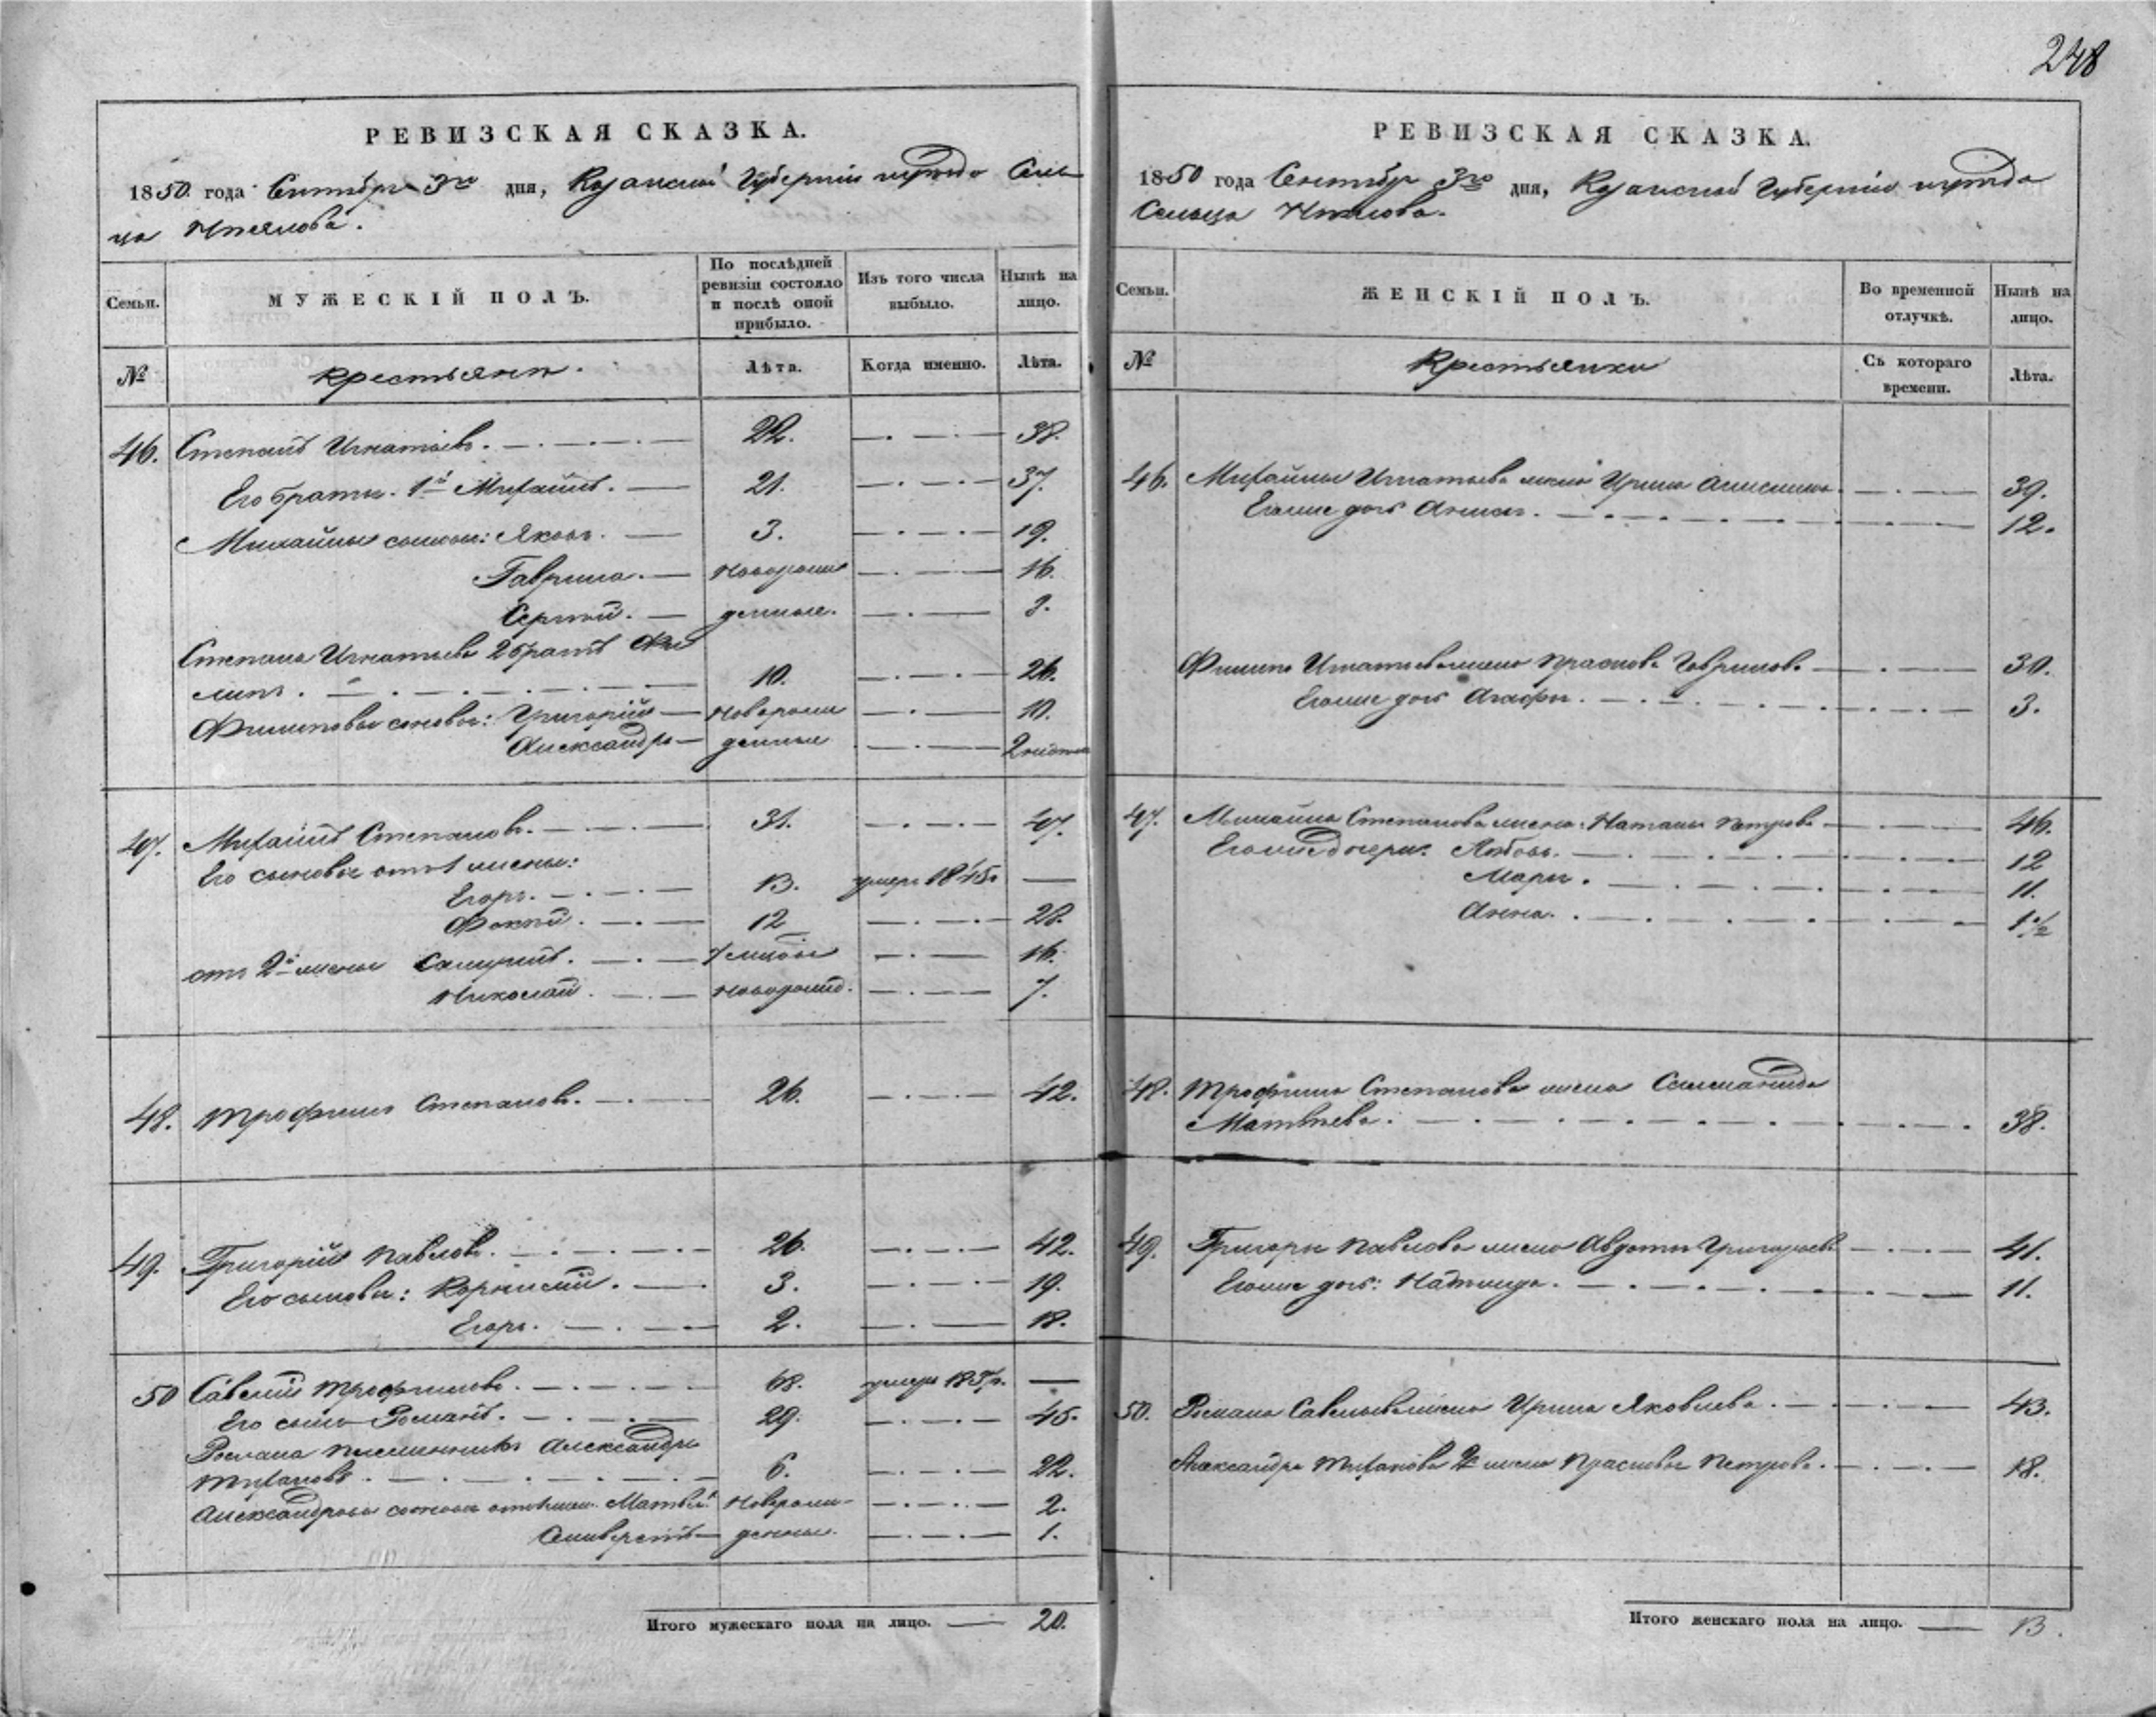 248
РЕВИЗСКАЯ СКАЗКА.
1850. года Сентября 3го дня, Казанской Губерніи и уѣзда Сель-
ца
№ Крестьяне.
Семьи. МУЖЕСКІЙ ПОЛЪ. По послѣдней ревизіи состояло и послѣ оной прибыло. Изъ того числа выбыло. Нынѣ на лицо.
Лѣта. Когда именно. Лѣта.
46. Степанъ Игнатьевъ. 22. 38.
Его братья. 1й Михайлъ. 21. 37.
Михайлы сыновья: Яковъ. 3. 19.
Гаврила. новорож 16.
Сергѣй. денные. 3.
Степана Игнатьева 2 братъ Фи
липъ. 10. 26.
Филиповы сыновья: Григорій новорож 10.
Александръ денные 2 
47. Михайлъ Степановъ. 31. 47.
Его сыновья отъ 1 жены:
Егоръ. 13. умеръ 1845.
Фокѣй. 12 28.
отъ 2й жены 16.
Николай. новорожд. 7.
48. Трофимъ Степановъ. 26. 42.
49. Григорій Павловъ. 26. 42.
Его сыновья: Корнилій. 3. 19.
Егоръ. 2. 18.
50 Савелій Трофимовъ. 68. умеръ 1837.
Его сынъ Романъ. 29. 45.
Романа племянникъ Александръ
6. 22.
Александровы сыновья отъ 1 жен. Матвѣй новорож- 2.
Селиверстъ денные. 1.
Итого мужескаго пола на лицо. 20.
РЕВИЗСКАЯ СКАЗКА.
1850 года Сентября 3го дня, Казанской Губерніи и уѣзда
Сельца
Семьи. ЖЕНСКІЙ ПОЛЪ. Во временной отлучкѣ. Нынѣ на лицо.
№ Крестьянки Съ котораго времени. Лѣта.
46. Михайлы Игнатьева жена Ирина 39.
Ево же дочь 12.
Филипа Игнатьева жена Прасковья Гаврилова 30.
Ево же дочь Агафья. 3.
47. Михайла Степанова жена: Наталья Петрова 46.
Ево же дочери: Любовь. 12
Марья. 11.
Анна. 1 1/2
48. Трофима Степанова жена
Матвѣева. 38.
49. Григорья Павлова жена Авдотья Григорьева 41.
Ево же дочь: Надежда. 11.
50. Романа Савельева жена Ирина Яковлева. 43.
Александра 2я жена Прасковья Петрова. 18.
Итого женскаго пола на лицо. 13.